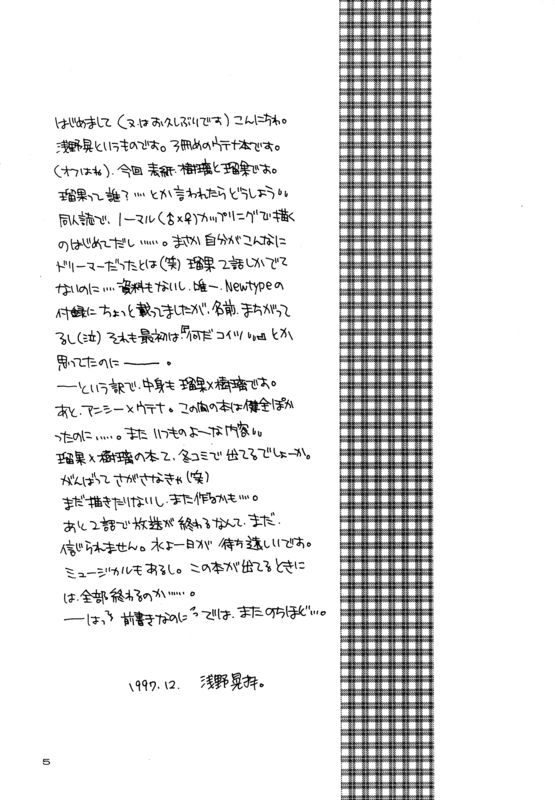 はじめまして(又はお久しぶりです)こんにちわ。
浅野晃というものです。3冊めのウテナ本です。
今回 表紙、樹璃と瑠果です。
瑠果って誰?…とか言われたらどうしよう
同人誌で、ノーマル(♂×♀)カップリングで描く
のはじめてだし……。まさか自分がこんなに
ドリーマーだったとは(笑) 瑠果2話しかでて
ないのに…資料もないし、唯一、Newtypeの
付録にちょっと載ってましたが、名前、まちがって
るし(泣)それも最初は『何だコイツ』とか
思ってたのに――。
――という訳で、中身も瑠果×樹璃です。
あと、アンシー×ウテナ。この前の本は健全ぽか
ったのに……。また いつものよーな内容
瑠果×樹璃の本て、冬コミで出てるでしょーか。
がんばってさがさなきゃ(笑)
まだ描きたりないし、また作るかも…。
あと2話で放送が終わるなんて、まだ、
信じられません。水よー日が待ち遠しいです。
ミュージカルもあるし。この本が出てるときに
は、全部終わるのか……。
――はっ 前書きなのに では、またのちほど…。
1997.12. 浅野晃
5